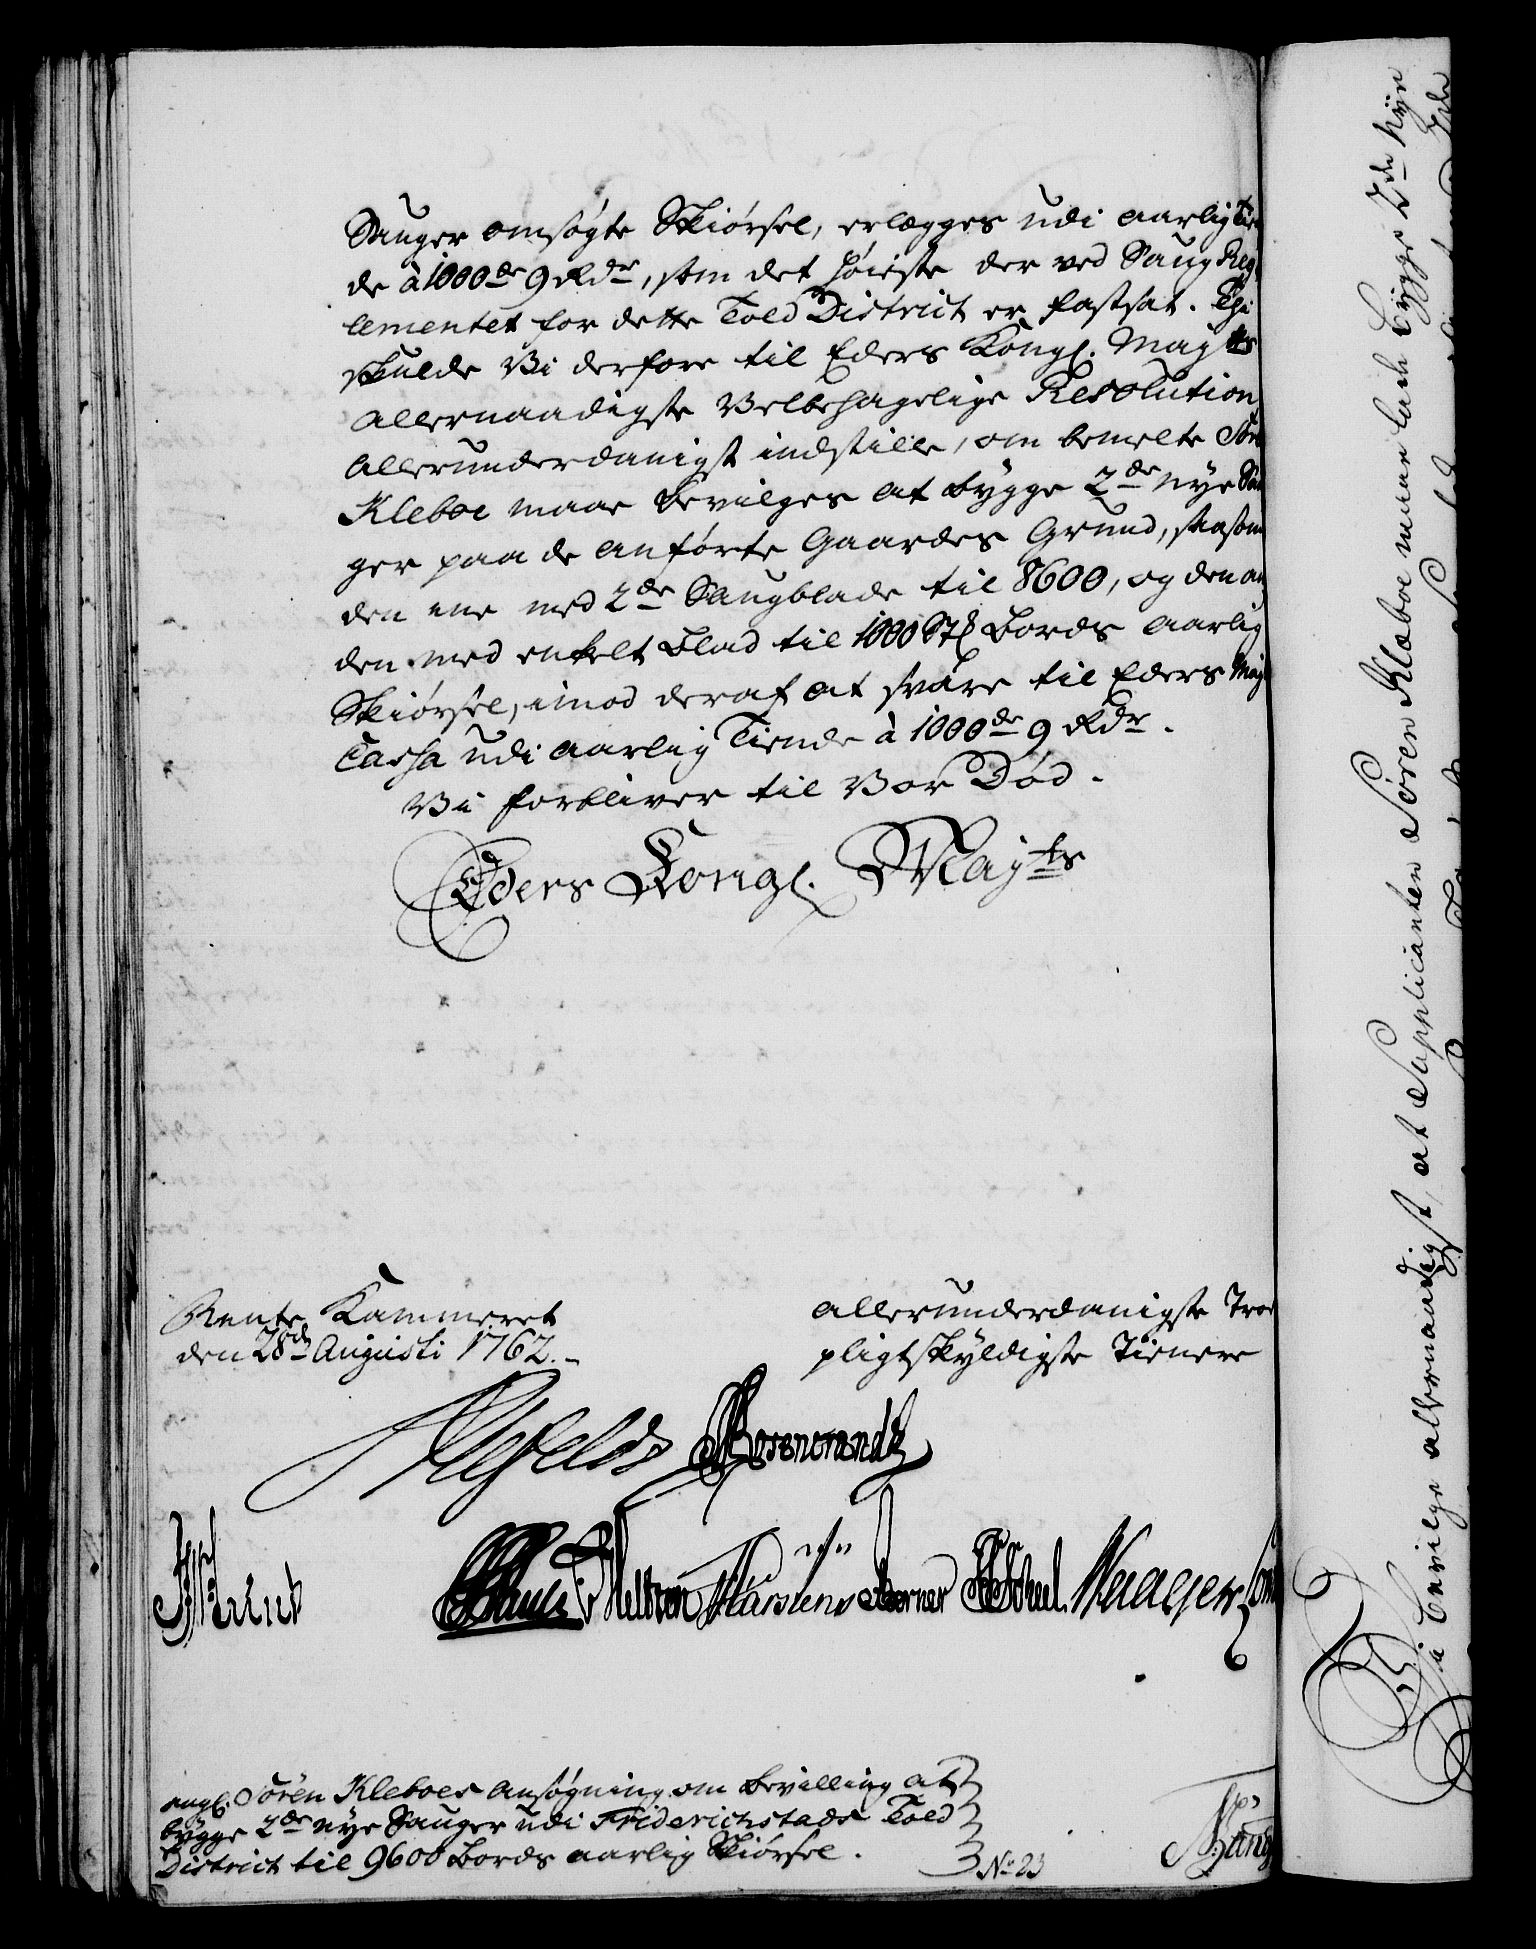 Sauger ansøgte Skiørsel, erlægges udi aarlig Tien
de à 1000de 9 Rdr, som det høieste der ved Saug Reg
lementet for dette Told District er fastsat. Thi
skulde Vi derfore til Eders Kongl. Mayts
allernaadigste Velbehagelige Resolution
allerunderdanigst indstille, om bemelte Sören
Kleboe maae bevilges at bygge 2de nye Sau
ger paa de anførte Gaardes Grund, saasom
den ene med 2de Saugblade til 8600, og den an
den med enkelt Blad til 1000 Stk Bords aarlig
Skiørsel, imod deraf at svare til Eders May
Cassa udi aarlig Tiende à 1000de 9 Rdr.
Vi forbliver til Vor Død.
Eders Kongl. Mayts
Rente Kammeret
den 28de Augusti 1762.
allerunderdanigste Troe
pligtskyldigste Tienere
Ahlefeldt Rosencrandtz
angl. Sören Kleboes Ansøgning om Bevilling at
bygge 2de nye Sauger udi Friderichstads Told
District til 9600 Bords aarlig Skiørsel.
No 23
Vi bevilge allernaadigst, at Supplicanten Sören Kleboe maae lade bygge 2de nye